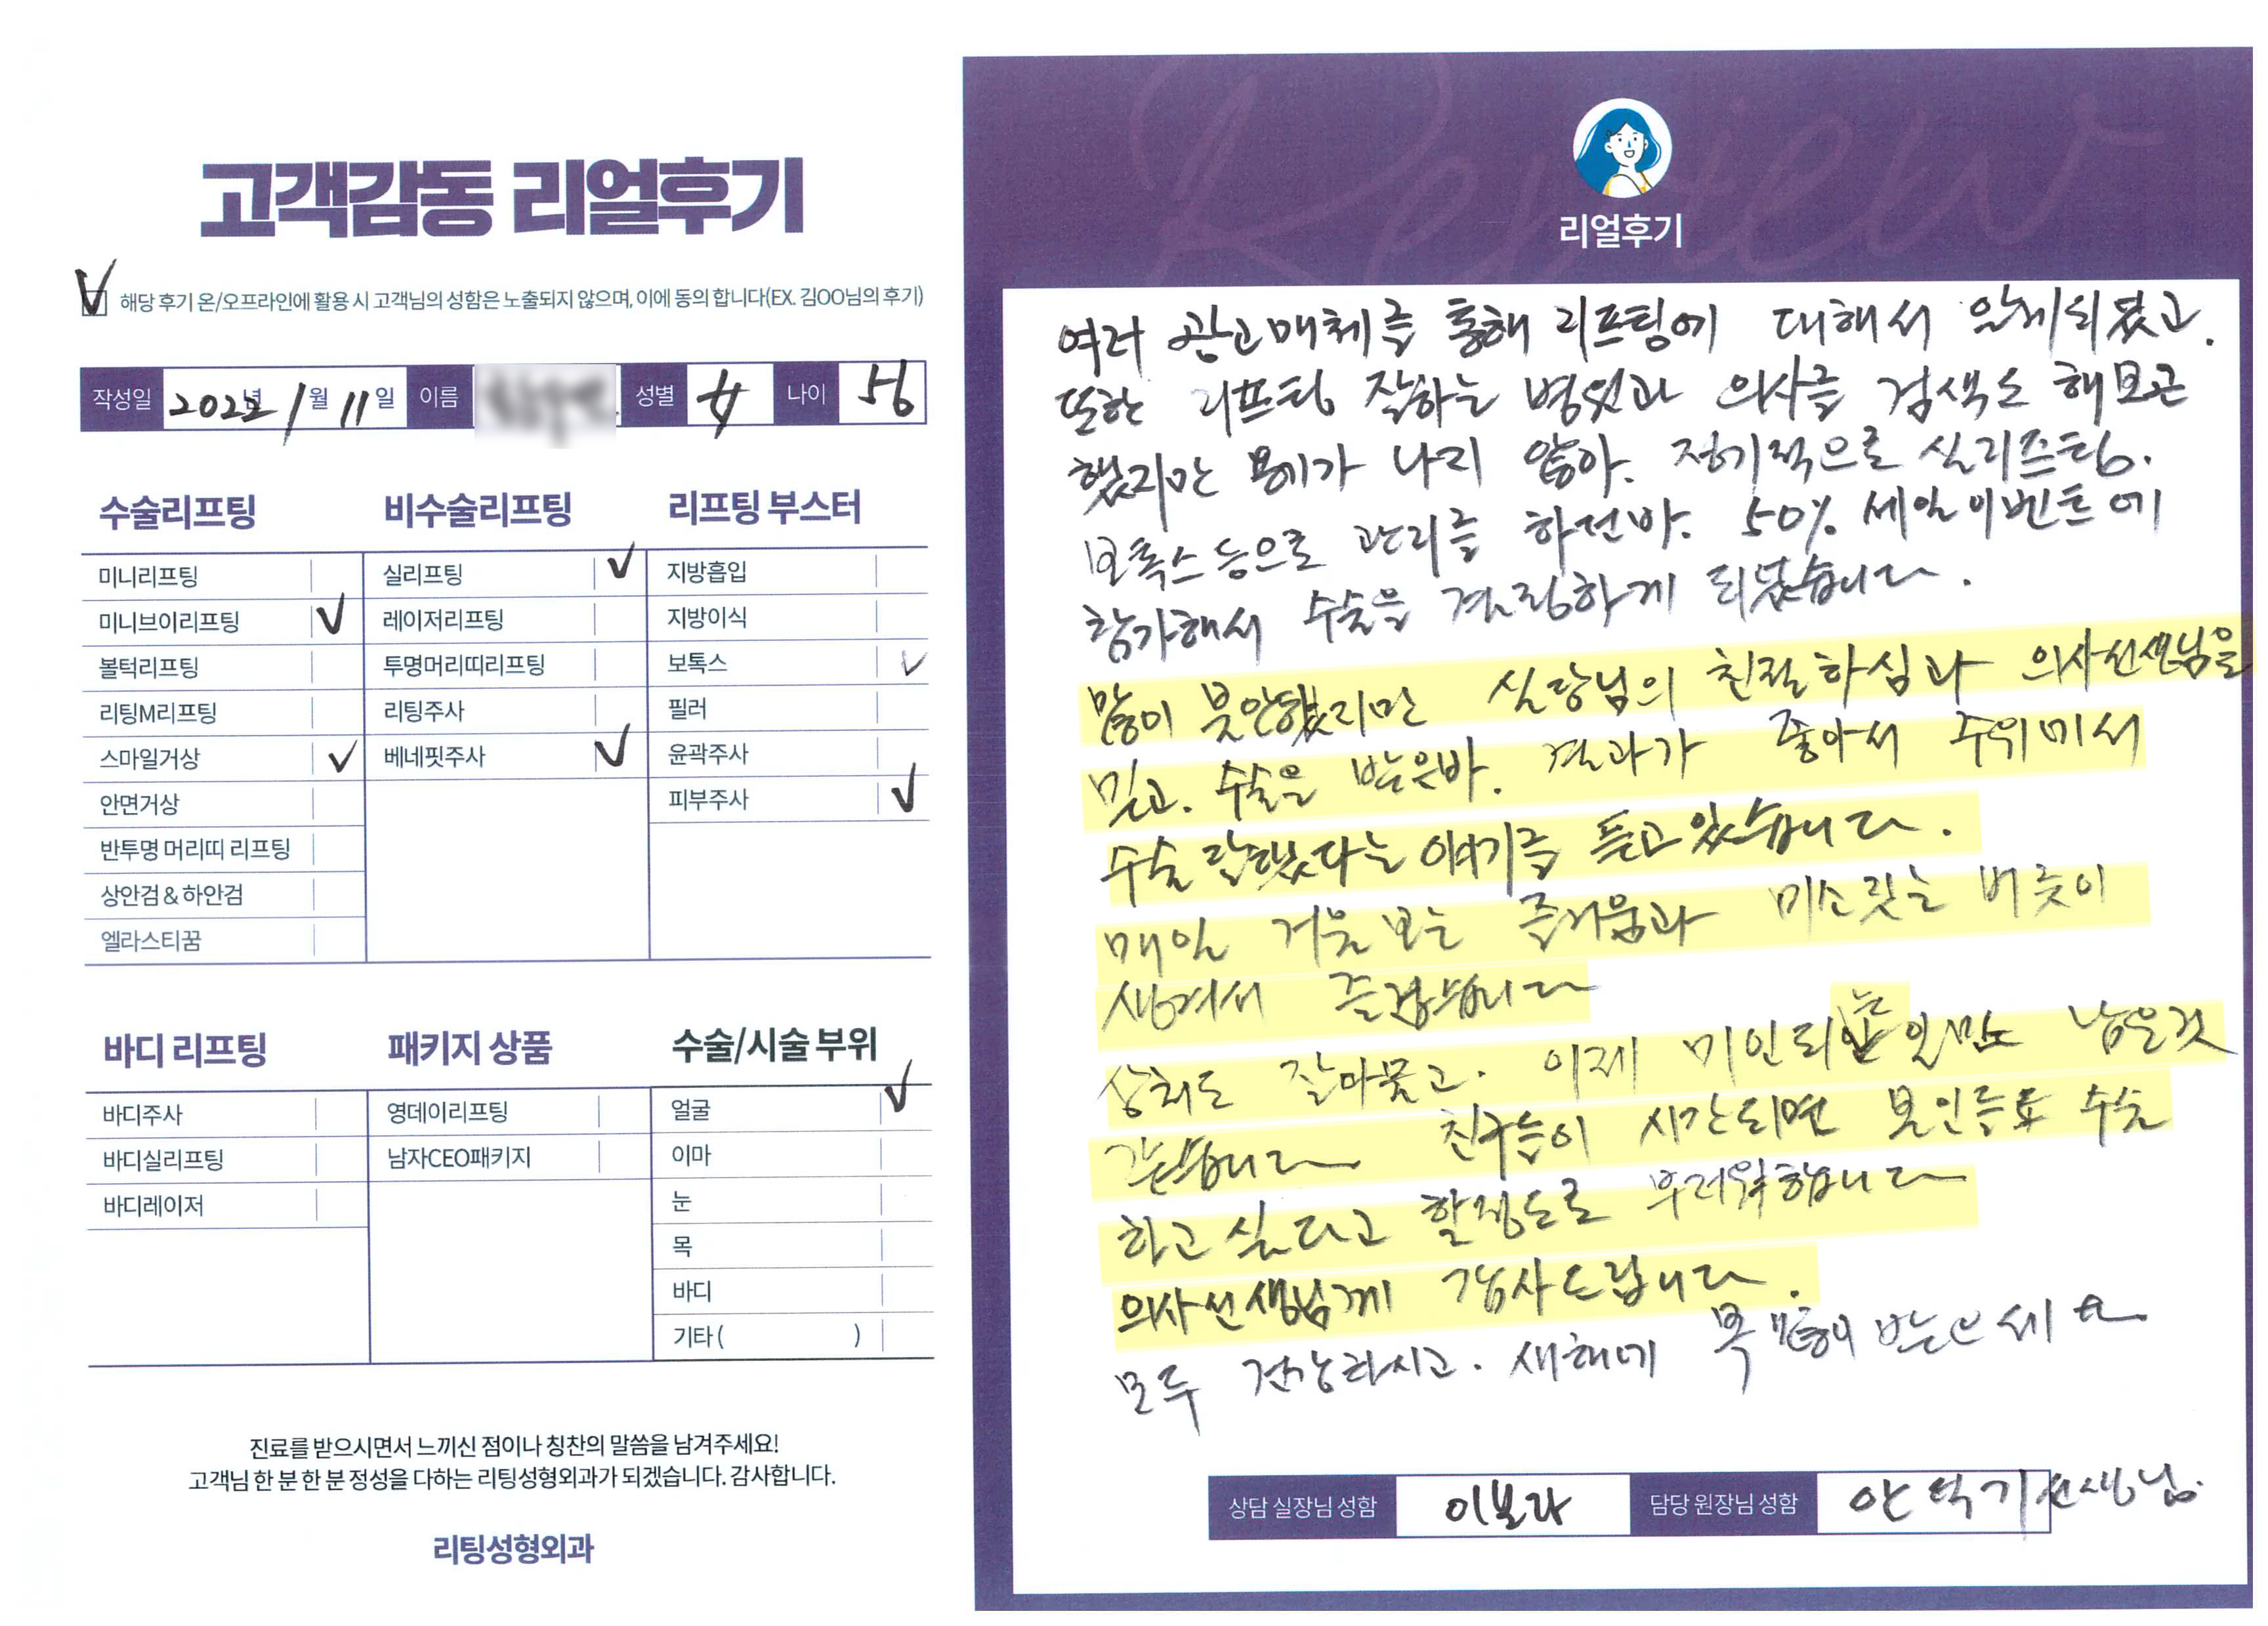 고객감동 리얼후기
해당 후기 온/오프라인에 활용 시 고객님의 성함은 노출되지 않으며, 이에 동의 합니다(EX. 김OO님의 후기)
작성일 2022년 1월 11일 이름 성별 女 나이 56
수술리프팅
미니리프팅
미니브이리프팅
볼턱리프팅
리팅M리프팅
스마일거상
안면거상
반투명 머리띠 리프팅
상안검 & 하안검
엘라스티꿈
비수술리프팅
실리프팅
레이저리프팅
투명머리띠리프팅
리팅주사
베네핏주사
리프팅 부스터
지방흡입
지방이식
보톡스
필러
윤곽주사
피부주사
바디 리프팅
바디주사
바디실리프팅
바디레이저
패키지 상품
영데이리프팅
남자CEO패키지
수술/시술 부위
얼굴
이마
눈
목
바디
기타 ( )
진료를 받으시면서 느끼신 점이나 칭찬의 말씀을 남겨주세요!
고객님 한 분 한 분 정성을 다하는 리팅성형외과가 되겠습니다. 감사합니다.
리팅성형외과
Review
리얼후기
여러 광고매체를 통해 리프팅에 대해서 알게되었고.
또한 리프팅 잘하는 병원과 의사를 검색도 해보곤
했지만 용기가 나지 않아. 정기적으로 실리프팅.
보톡스등으로 관리를 하던바. 50% 세일이벤트에
참가해서 수술을 결정하게 되었습니다.
많이 불안했지만 실장님의 친절하심과 의사선생님을
믿고. 수술을 받은바. 결과가 좋아서 주위에서
수술 잘했다는 이야기를 듣고있습니다.
매일 거울보는 즐거움과 미소짓는 버릇이
생겨서 즐겁습니다
상처도 잘아물고. 이제 미인되는 일만 남은것
같습니다 친구들이 시간되면 본인들도 수술
하고 싶다고 할정도로 부러워합니다
의사선생님께 감사드립니다.
모두 건강하시고. 새해에 복 많이 받으세요
상담 실장님 성함 이보라 담당 원장님 성함 안덕기 선생님.